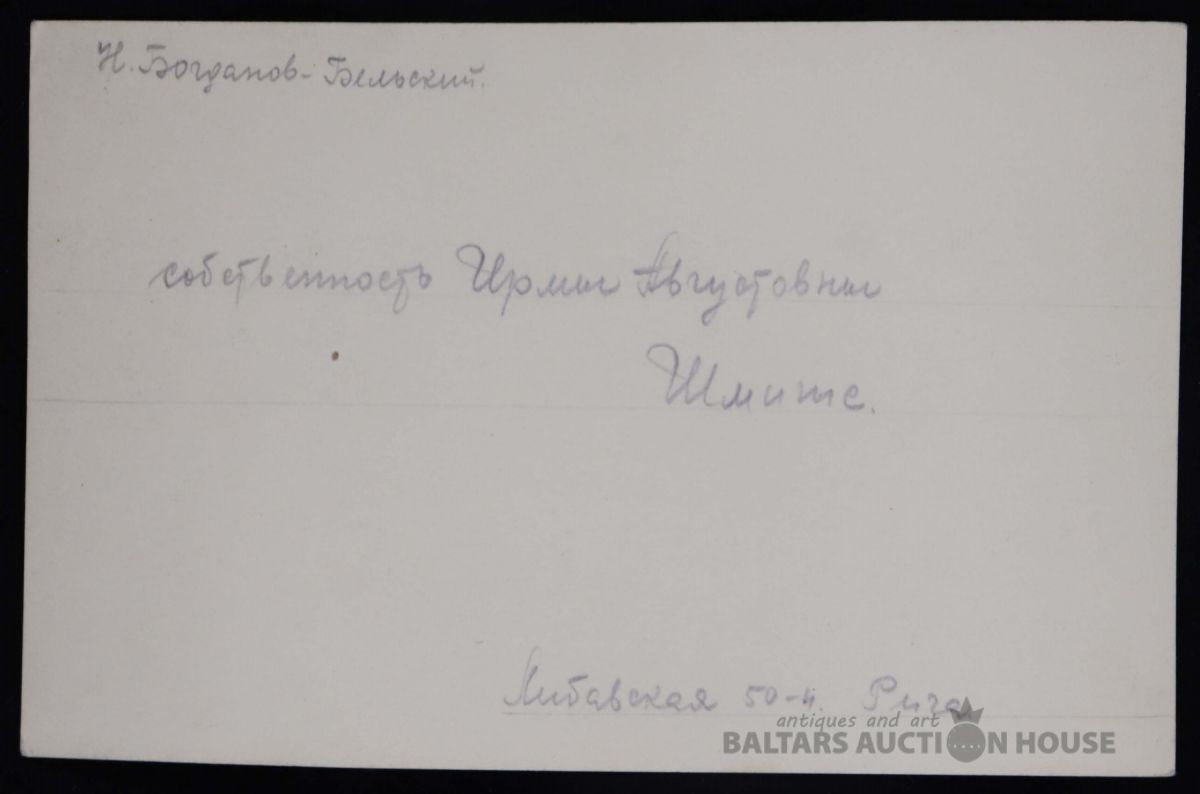 Н. Богданов-Бельский.
собственность Ирмы Августовны
Шмитс.
Либавская 50-4. Рига
antiques and art
BALTARS AUCTION HOUSE